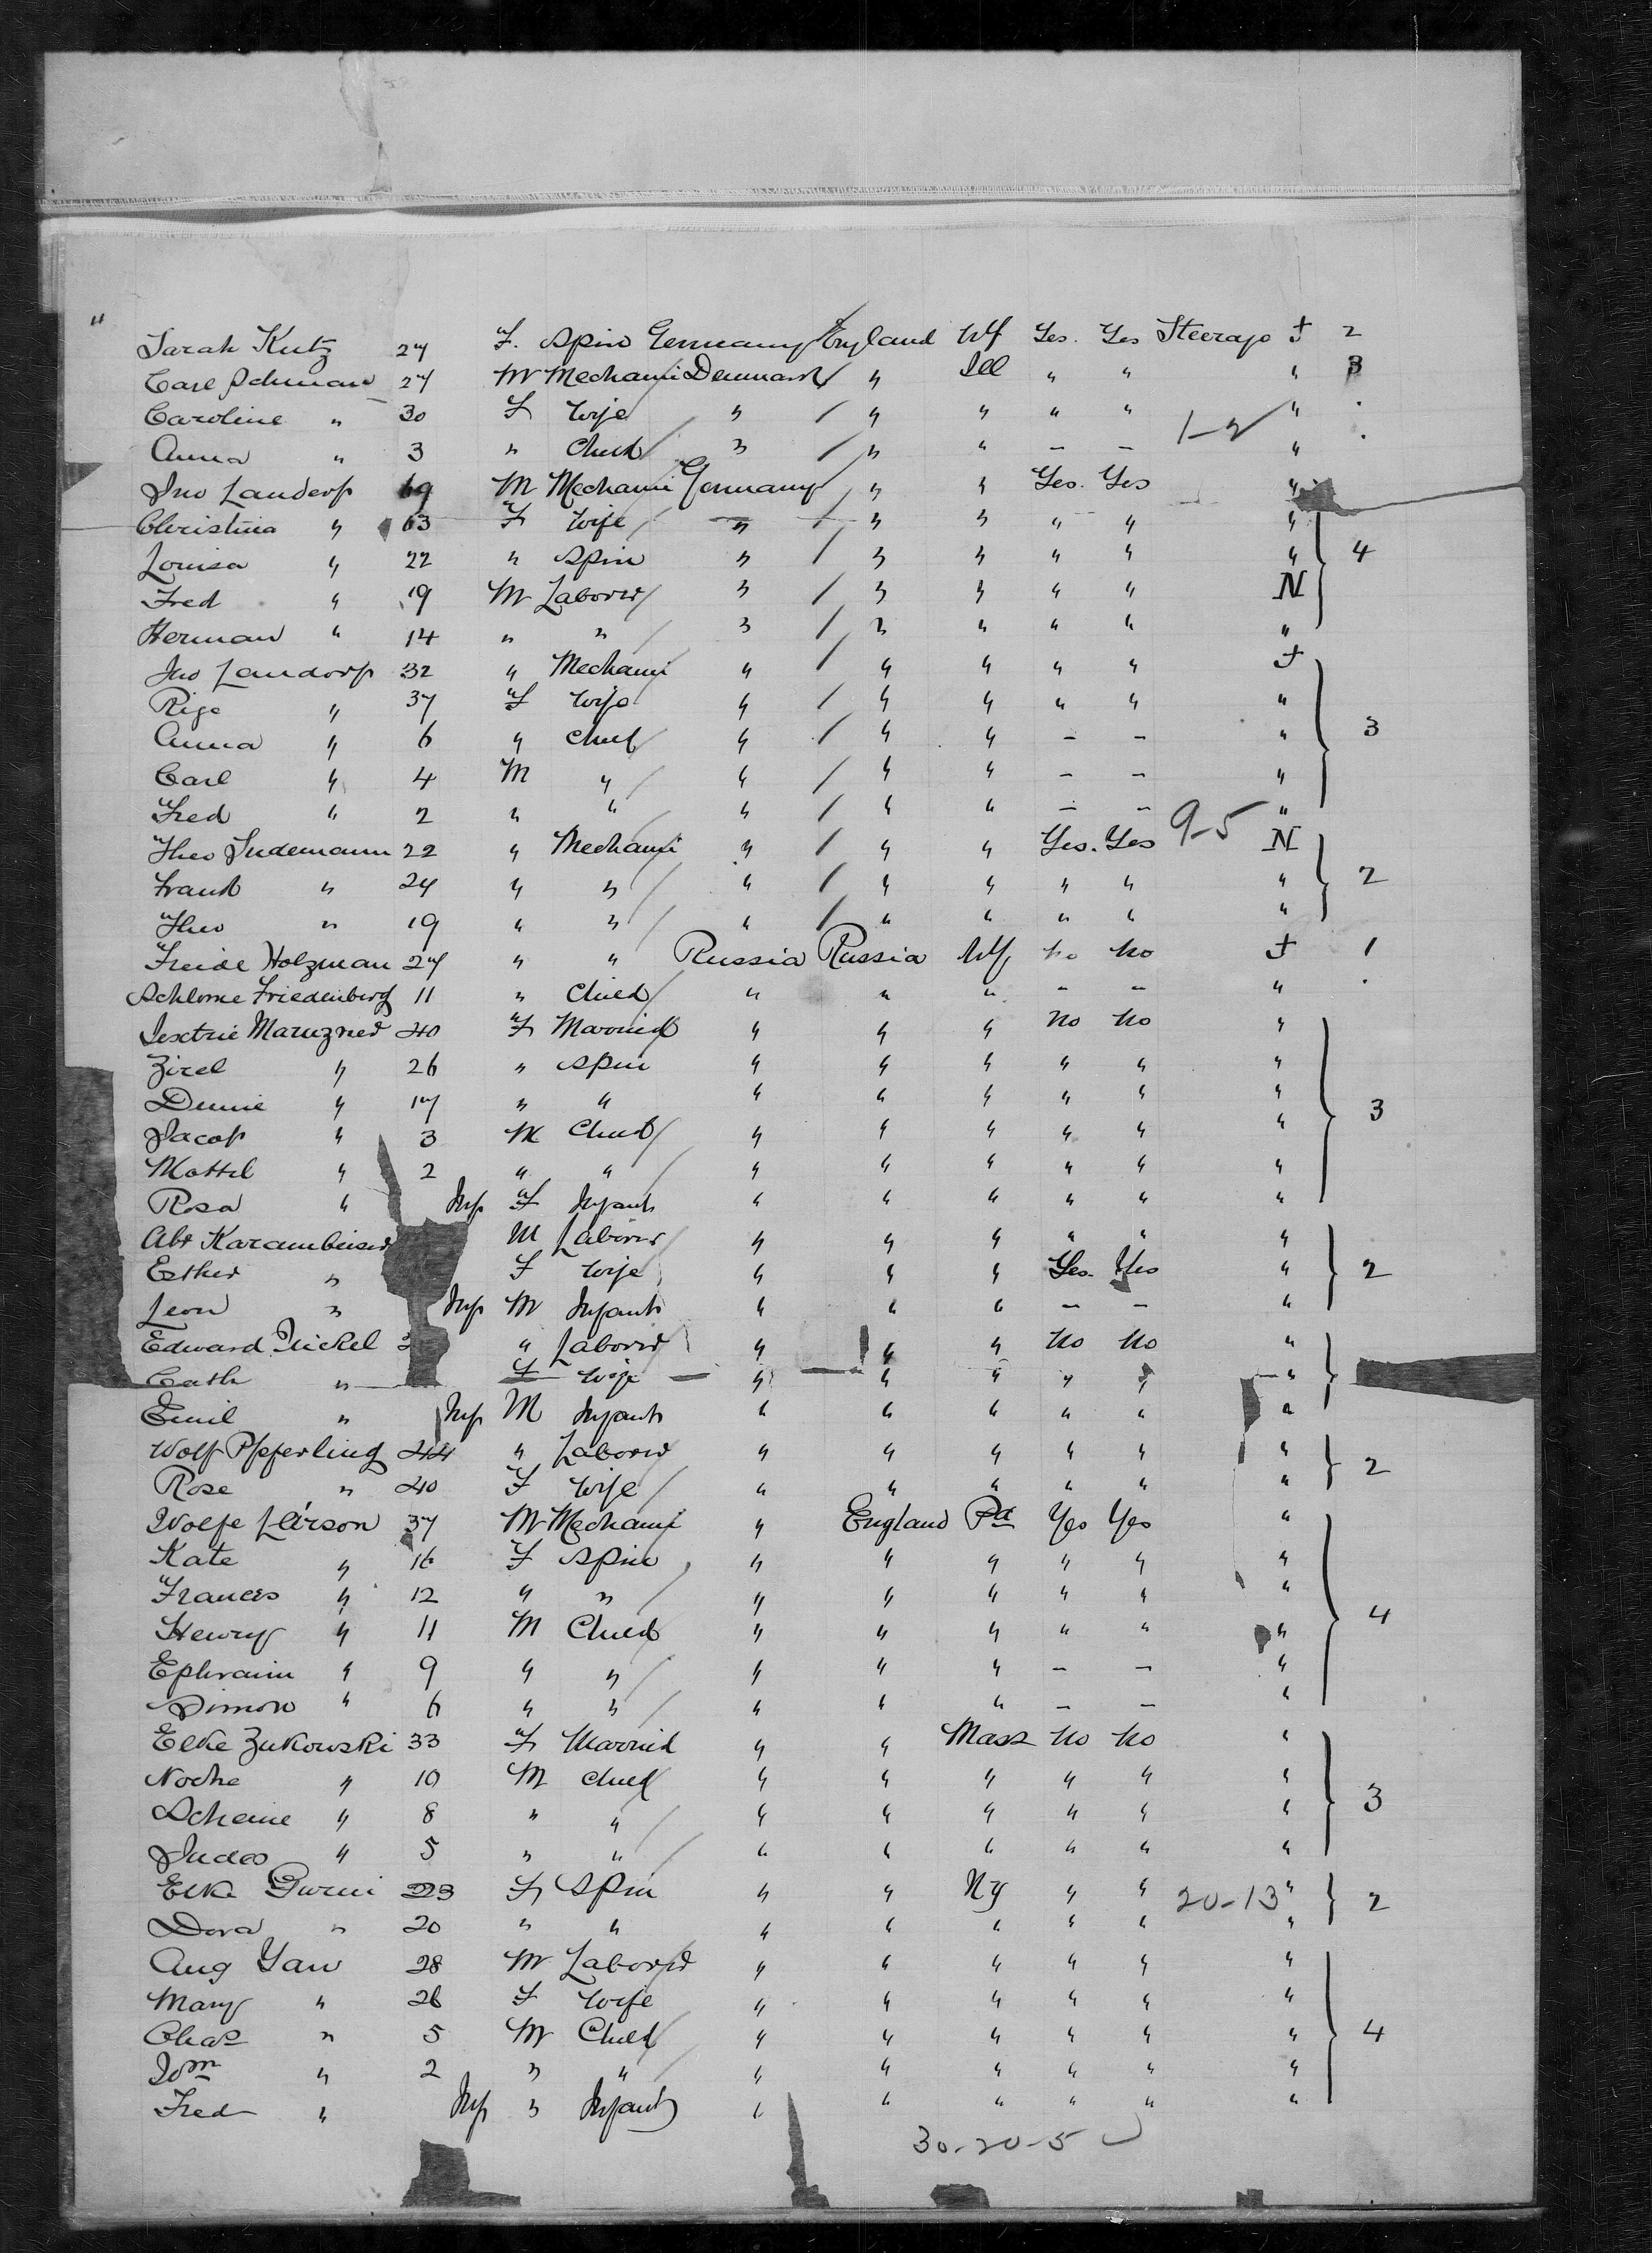 "
Sarah Kutz 27 F. Spin Germany England NY Yes. Yes Steerage † 2
Carl Schman 27 M Mechani Denmark " Ill " " " 3
Caroline " 30 F Wife " " " " " "
Anna " 3 " Child " " " – – 1–2 "
Jno Landorf 69 M Mechani Germany " " Yes. Yes "
Christina " 63 F Wife " " " " " "
Louisa " 22 " Spin " " " " " " 4
Fred " 19 M Laborer " " " " " N
Herman " 14 " " " " " " " "
Jno Landorf 32 " Mechani " " " " " †
Rige " 37 F Wife " " " " " "
Anna " 6 " Child " " " – – " 3
Carl " 4 M " " " " – – "
Fred " 2 " " " " " – – 9–5 "
Theo Sudemann 22 " Mechani " " " Yes. Yes N
Frank " 24 " " " " " " " " 2
Theo " 19 " " " " " " " "
Freide Holzman 27 " " Russia Russia NY No No † 1
Schlome Friedenberg 11 " Child " " " – – "
Maruzner 40 F Married " " " No No "
Zirel " 26 " Spin " " " " " "
Dunie " 17 " " " " " " " " 3
Jacob " 3 M Child " " " " " "
Mottel " 2 " " " " " " " "
Rosa " Inf F Infant " " " " " "
Abr M Laborer " " " " " "
Esther " F Wife " " " Yes. Yes " 2
Leon " Inf M Infant " " " – – "
Edward Nickel 3 " Laborer " " " No No "
Cath " F Wife " " " " " "
Emil " Inf M Infant " " " " " "
Wolf Pfperling 44 " Laborer " " " " " " 2
Rose " 40 F Wife " " " " " "
Wolfe Lerson 37 M Mechani " England Pa Yes Yes "
Kate " 16 F Spin " " " " " "
Frances " 12 " " " " " " " "
Henry " 11 M Child " " " " " " 4
Ephraim " 9 " " " " " – – "
Simon " 6 " " " " " – – "
Elke Zukowski 33 F Married " " Mass No No "
Noche " 10 M Child " " " " " "
Scheine " 8 " " " " " " " " 3
Judes " 5 " " " " " " " "
Elke Gurni 23 F Spin " " NY " " 20–13 " 2
Dora " 20 " " " " " " " "
Aug Yan 28 M Laborer " " " " " "
Mary " 26 F Wife " " " " " "
Chas " 5 M Child " " " " " " 4
Wm " 2 " " " " " " " "
Fred " Inf " Infant " " " " " "
30–20–5